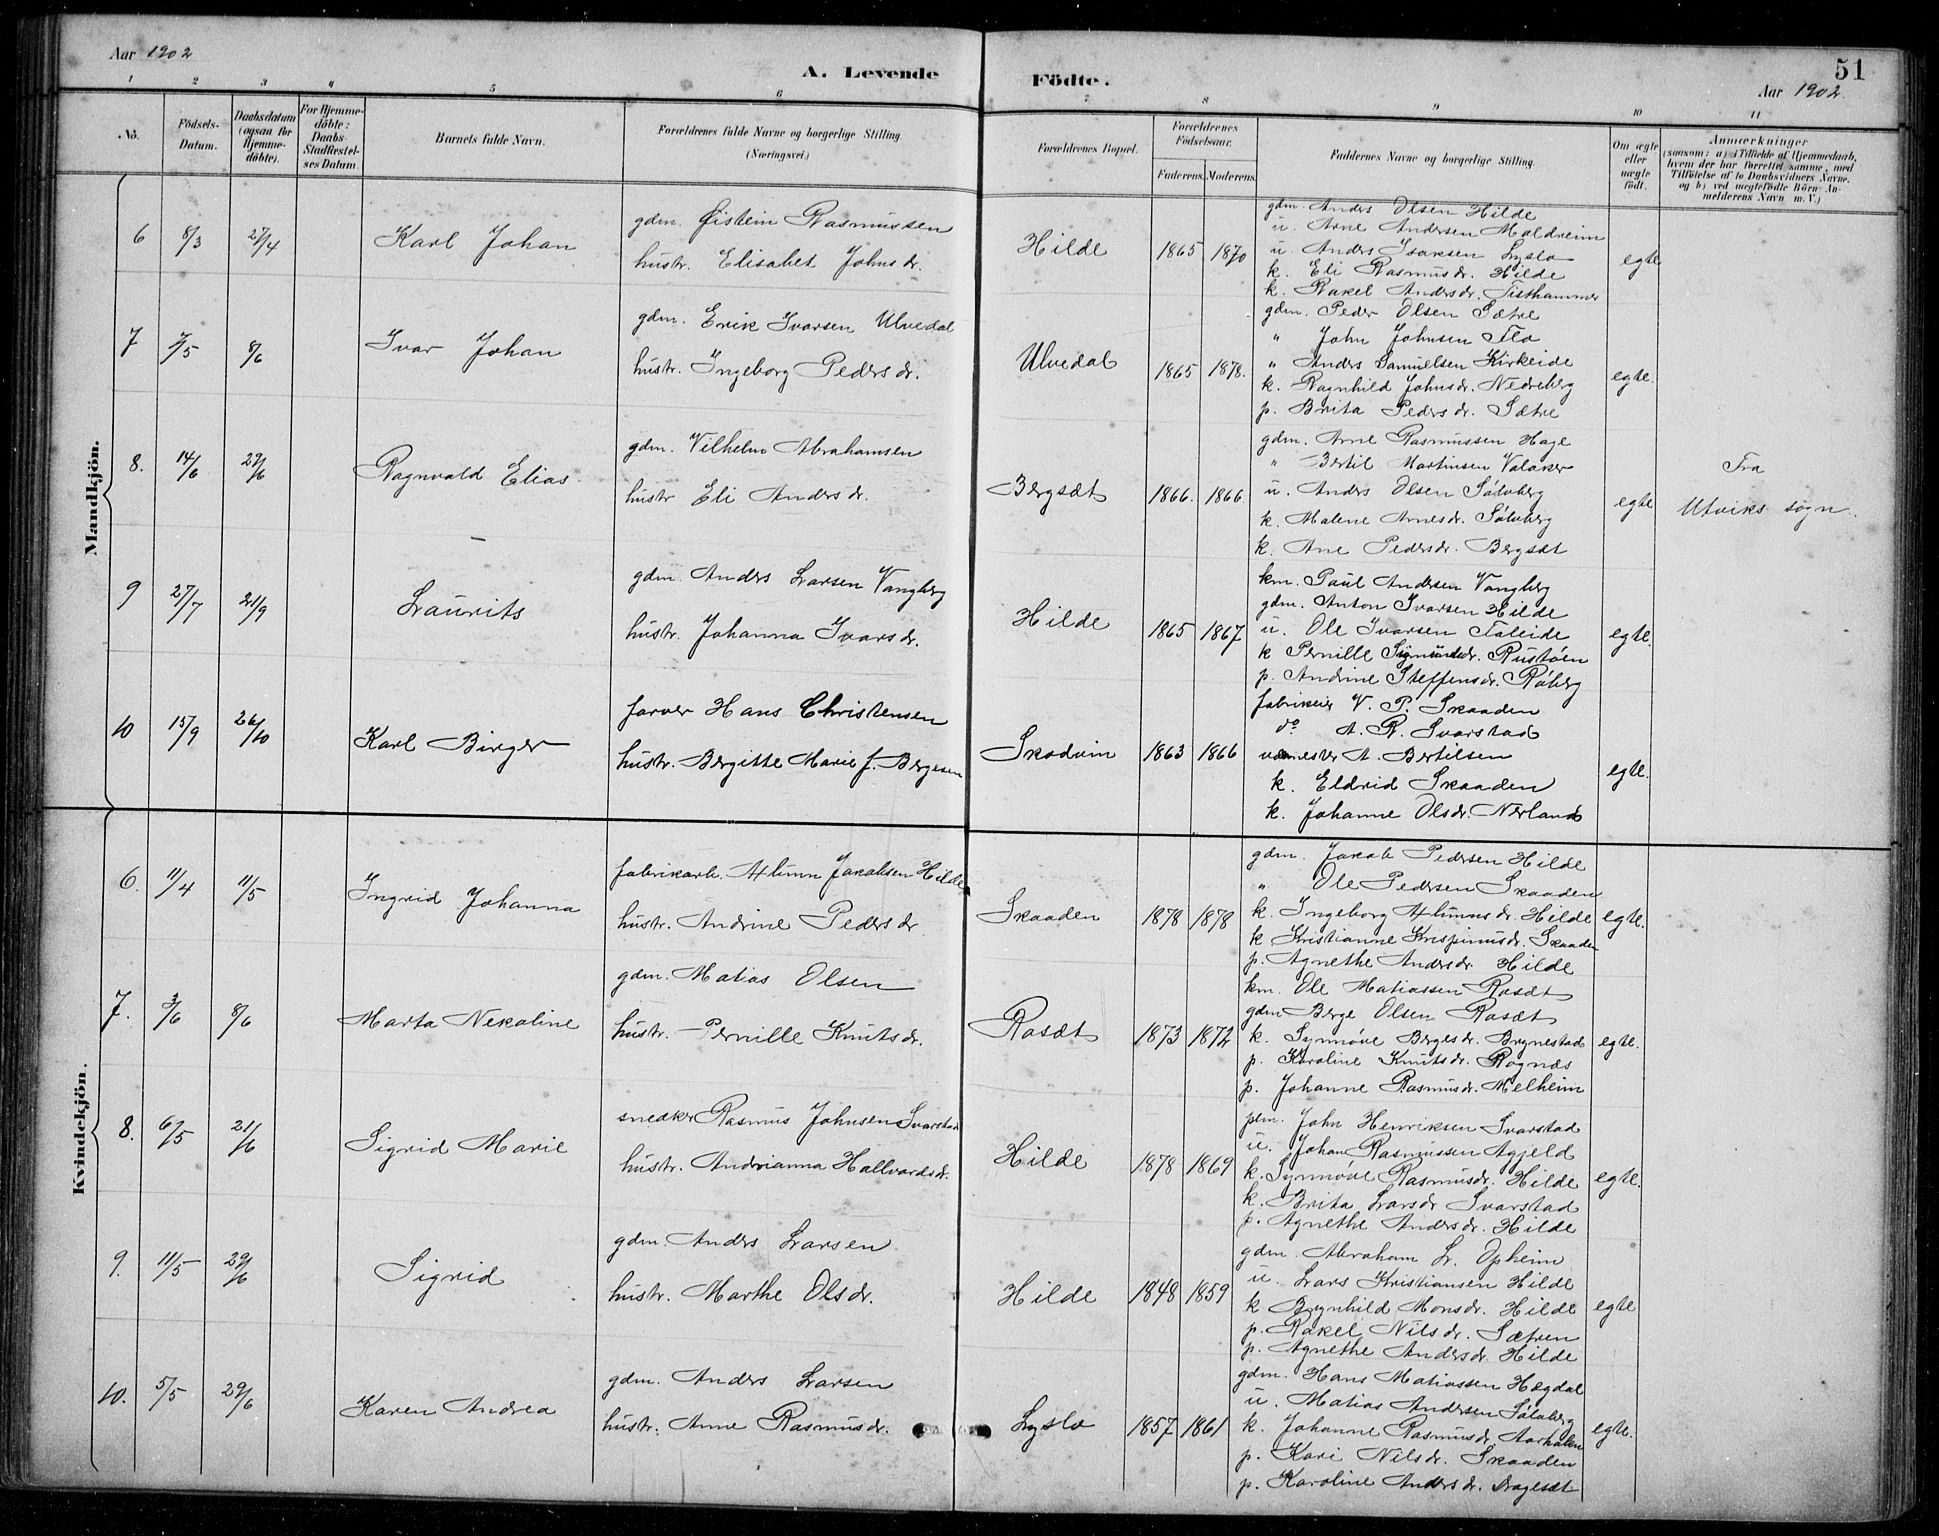 Aar 1902
A. Levende Födte.
51
Aar 1902.
1 2 3 4 5 6 7 8 9 10 11
No.
Födsels-Datum.
Daabsdatum (ogsaa for Hjemme-döbte).
For Hjemme-döbte: Daabs-Stadfæstel-ses Datum.
Barnets fulde Navn.
Forældrenes fulde Navne og borgerlige Stilling.
(Næringsvei.)
Forældrenes Bopæl.
Forældrenes Födselsaar.
Faderens. Moderens.
Faddernes Navne og borgerlige Stilling.
Om ægte eller uægte födt.
Anmærkninger
(saasom: a) i Tilfælde af Hjemmedaab, hvem der har forrettet samme, med Tilföielse af to Daabsvidners Navne. og b) ved uægtefödte Börn An-melderens Navn m. V.)
Mandkjön.
6 8/3 27/4 Karl Johan
gdm. Øistein Rasmussen
hustr. Elisabet Johns dr.
Hilde 1865 1870
gdm. Anders Olsen Hilde
u. Arne Andersen Maldreim
u. Anders Isaksen Lyslo
k. Eli Rasmusdr. Hilde
k. Rakel Andersdr. Tisthammer
egte
7 7/5 8/6 Ivar Johan
gdm. Erik Ivarsen Ulvedal
hustr. Ingeborg Peders dr.
Ulvedal 1865 1878.
gdm. Peder Olsen Sætre
" John Johnsen Flo
" Anders Samuelsen Kirkeide
k. Ragnhild Johnsdr. Nedreberg
p. Brita Peders dr. Sætre
egte.
8. 14/6 29/6 Ragnvald Elias
gdm. Vilhelm Abrahamsen
hustr Eli Anders dr.
Bergsæt 1866. 1866.
gdm. Arne Rasmussen Hage
" Bertil Martinsen Valaker
u. Anders Olsen Sølvberg
k. Malene Arnesdr. Sølvberg
k. Ane Pedersdr. Bergsæt
egte
Fra
Utviks sogn.
9 27/7 21/9 Laurits
gdm. Anders Larsen Vangberg
hustr. Johanna Ivars dr.
Hilde 1865 1867
km. Paul Andersen Vangberg
gdm. Anton Ivarsen Hilde
u. Ole Ivarsen Faleide
k Pernille Sigmundsdr. Rustøen
p. Andrine Steffensdr. Røberg
egte.
10 15/9 26/10 Karl Birger
farver Hans Christensen
hustr. Bergitte Marie f. Bergesen
Skodvin 1863 1866
fabrikeier V. P. Skaaden
do A. R. Svarstad
A. Bertilsen
k. Eldrid Skaaden
k. Johanne Olsdr. Nerland
egte.
Kvindekjön.
6. 11/4 11/5 Ingrid Johanna
fabrikarb. Jakobsen Hilde
hustr. Andrine Peders dr
Skaaden 1878 1878
gdm. Jakob Pedersen Hilde
" Ole Pedersen Skaaden
k. Ingeborg dr. Hilde
k Kristianne Krispinusdr. Skaaden
p. Agnethe Andersdr. Hilde
egte.
7. 3/6 8/6 Marta Nekoline
gdm. Matias Olsen
hustr. Pernille Knuts dr.
Rosæt 1873 1872
km. Ole Matiassen Rosæt
gdm Berge Olsen Rosæt
k. Synnøve Bergesdr. Brynestad
p. Karoline Knutsdr. Rognæs
p. Johanne Rasmusdr. Melheim
egte.
8. 6/5 21/6 Sigrid Marie
snedker Rasmus Johnsen Svarstad
hustr. Andrianna Hallvards dr.
Hilde 1878 1869
pem. John Henriksen Svarstad
u. Johan Rasmussen Agjeld
k. Synnøve Rasmusdr. Hilde
k. Brita Larsdr Svarstad
p. Agnethe Andersdr. Hilde
egte.
9. 11/5 29/6 Sigrid
gdm. Anders Larsen
hustr. Marthe Olsdr.
Hilde 1848 1859
gdm. Abraham L. Opheim
u. Lars Kristiansen Hilde
k Brynhild Monsdr. Hilde
p. Rakel Nilsdr. Sætren
p. Agnethe Andersdr. Hilde
egte
10. 5/5 29/6 Karen Andrea
gdm. Anders Larsen
hustr. Anne Rasmusdr.
Lyslo 1857 1861
gdm. Hans Matiassen Hegdal
u. Matias Andersen Sølvberg
k. Johanne Rasmusdr Aarholen
p. Kari Nilsdr. Skaaden
p. Karoline Andersdr. Dragesæt
egte.